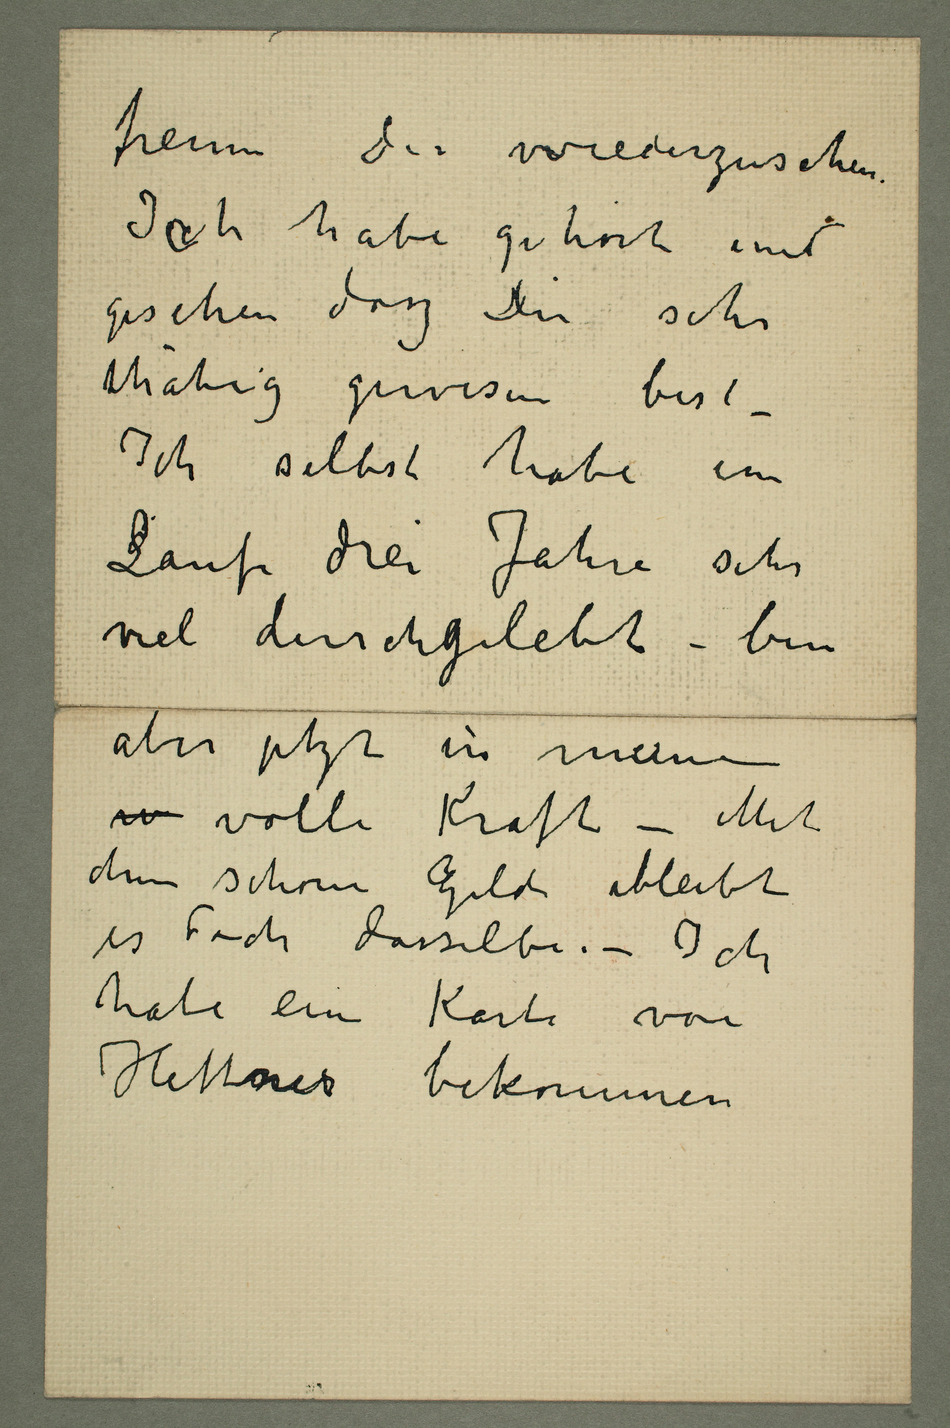 freun Di wiederzusehen.
Ich habe gehört und
gesehen dasz Du sehr
thätig gewesen bist –
Ich selbst habe im
Laufe drei Jahre sehr
viel durchgelebt – bin
aber jetzt in meine
volle Kraft – Mit
dem schöne Gelde bleibt
es doch dasselbe. – Ich
habe ein Karte von
Hettner bekommen